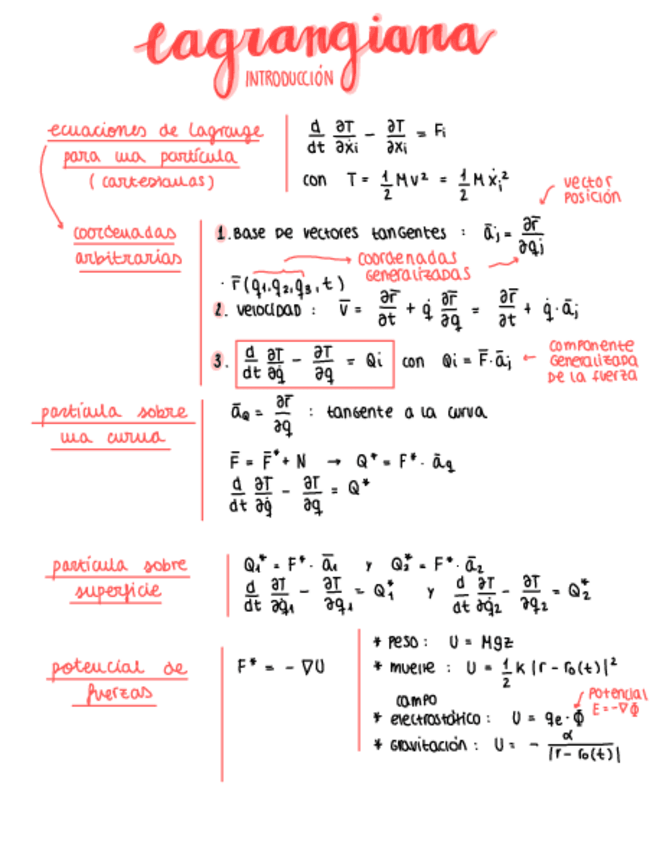 Lagrangiana
INTRODUCCIÓN
ecuaciones de Lagrange
para una partícula
(cartesianas)
d/dt ∂T/∂ẋi − ∂T/∂xi = Fi
con T = 1/2 Mv² = 1/2 Mẋi²
vector
posición
coordenadas
arbitrarias
1. Base de vectores tangentes : āj = ∂r̄/∂qj
coordenadas
generalizadas
· r̄(q1,q2,q3,t)
2. velocidad : v̄ = ∂r̄/∂t + q̇ ∂r̄/∂q = ∂r̄/∂t + q̇·āj
3. d/dt ∂T/∂q̇ − ∂T/∂q = Qi con Qi = F̄·āj ←
componente
generalizada
de la fuerza
partícula sobre
una curva
āQ = ∂r̄/∂q : tangente a la curva
F̄ = F̄* + N → Q* = F*· āq
d/dt ∂T/∂q̇ − ∂T/∂q = Q*
partícula sobre
superficie
Q1* = F*· ā1 y Q2* = F*· ā2
d/dt ∂T/∂q̇1 − ∂T/∂q1 = Q1* y d/dt ∂T/∂q̇2 − ∂T/∂q2 = Q2*
potencial de
fuerzas
F* = − ∇U
* peso : U = Mgz
* muelle : U = 1/2 K |r − r0(t)|²
campo
* electrostático : U = qe·Φ
potencial
E = −∇Φ
* gravitación : U = − α/|r − r0(t)|